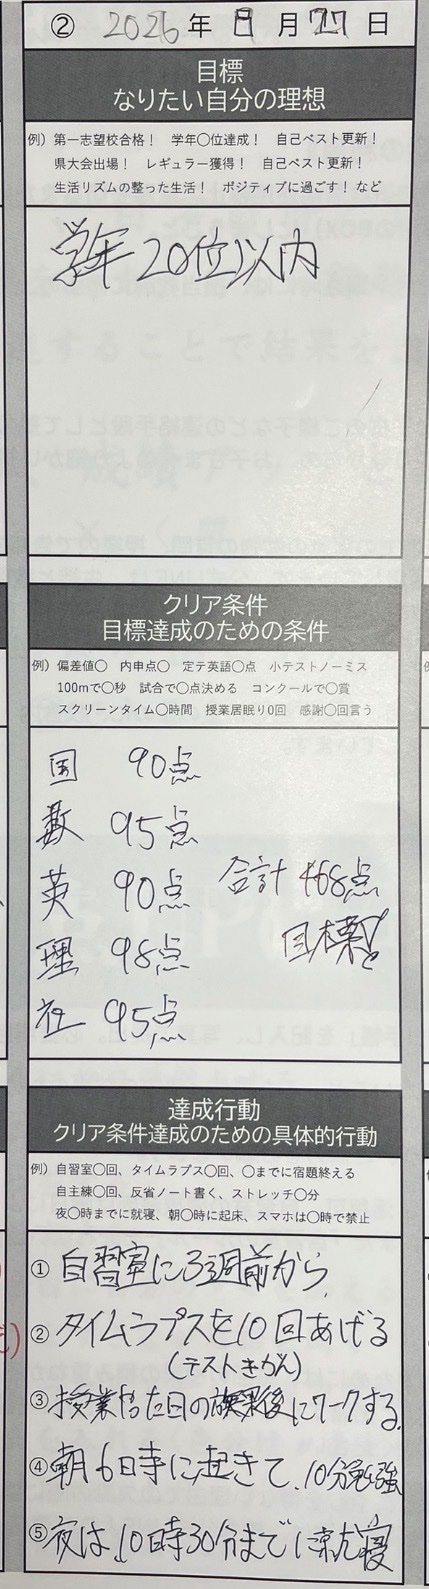 ② 2026年 8月27日
目標
なりたい自分の理想
例）第一志望校合格！ 学年〇位達成！ 自己ベスト更新！
県大会出場！ レギュラー獲得！ 自己ベスト更新！
生活リズムの整った生活！ ポジティブに過ごす！ など
学年20位以内
クリア条件
目標達成のための条件
例）偏差値〇 内申点〇 定テ英語〇点 小テストノーミス
100mで〇秒 試合で〇点決める コンクールで〇賞
スクリーンタイム〇時間 授業居眠り0回 感謝〇回言う
国 90点
数 95点
英 90点 合計 468点
理 98点 目標
社 95点
達成行動
クリア条件達成のための具体的行動
例）自習室〇回、タイムラプス〇回、〇までに宿題終える
自主練〇回、反省ノート書く、ストレッチ〇分
夜〇時までに就寝、朝〇時に起床、スマホは〇時で禁止
① 自習室に3週前から
② タイムラプスを10回あげる
(テストきかん)
③ 授業た日の放課後にワークする
④ 朝6時に起きて、10分勉強
⑤ 夜は、10時30分までに就寝